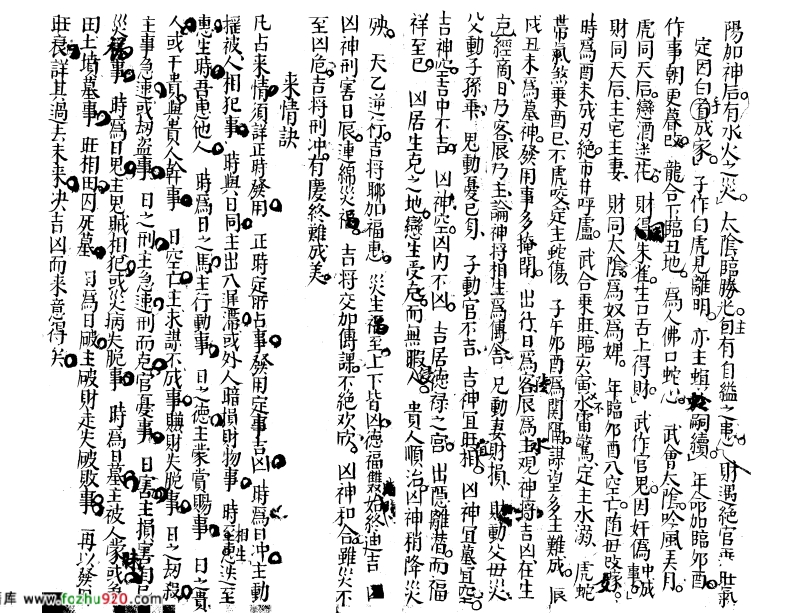 陽加神后有水火之災 太陰臨勝光包有自縊之患 財遇絕官
定因白首成家 子作白虎見離明 亦主嗣續 年命如臨卯酉
作事朝更暮改 龍合下臨丑地 為人佛口蛇心 武會太陰吟風弄月
虎同天后戀酒迷花 財朱雀生口舌上得財 武作官鬼因奸偽中成
財同天后主宅主妻 財同太陰為奴為婢 年臨卯酉八空亡隨母改嫁
時為酉未成刃絕市井呼盧 武合乘旺臨亥寅水雷驚定主水溺 虎蛇
帶氣煞乘酉巳不虎咬定主蛇傷 子午卯酉為關隔謀望多主難成 辰
戌丑未為墓神發用事多掩閉 出行日為客辰為主觀神將吉凶在生
克經商日乃客辰乃主論神將相生為傳舍 兄動妻財損 財動父母災
父動子孫乖 鬼動憂己身 子動官不吉 吉神宜旺相 凶神宜墓宜空
吉神空吉中不吉 凶神空凶內不凶 吉居德祿之宮出隱離潛而福
祥至已 凶居生克之地戀生受克而無暇 貴人順治凶神稍降災
殃 天乙逆行吉將聊加福惠 災主福至上下皆凶德福雙始終迪吉
凶神刑害日辰連綿災禍 吉將交加傳課不絕歡欣 凶神和合雖災不
至凶危 吉將刑冲有慶終難成美
來情訣
凡占來情須詳正時發用 正時定所占事發用定事吉凶 時為日冲主動
搖被人相犯事 時與日同主出入遲滯或外人賠損財物事 時
惠生時吾惠他人 時為日之馬主行動事 日之德主家賞賜事 日之貴
人或干貴與貴人幹事 日空亡主求謀不成事賺財失脫事 日之劫殺
主事急速或劫盜事 日之刑主急速刑而克官憂事 日害主損害
災事 時為日鬼主鬼賊相犯或災病失脫事 時為日墓主被人
田土墳墓事 旺相田囚死墓 時為日破主破財走失破敗事 再以發
旺衰詳其過去未來決吉凶而來意得矣
庫 www.fozhu920.com